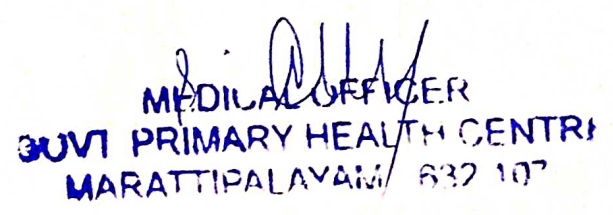 MEDICAL OFFICER
GOVT PRIMARY HEALTH CENTRE
MARATTIPALAYAM 632 107